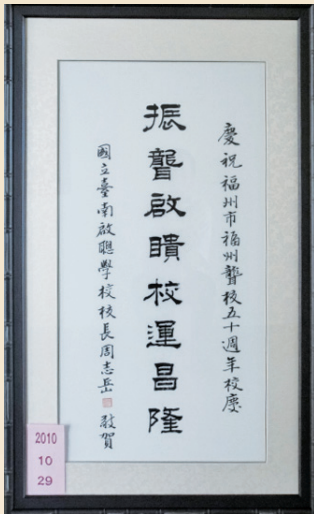 慶祝福州市福州聾校五十週年校慶
振聾啟聵校運昌隆
國立臺南啟聰學校校長周志岳 敬賀
2010
10
29